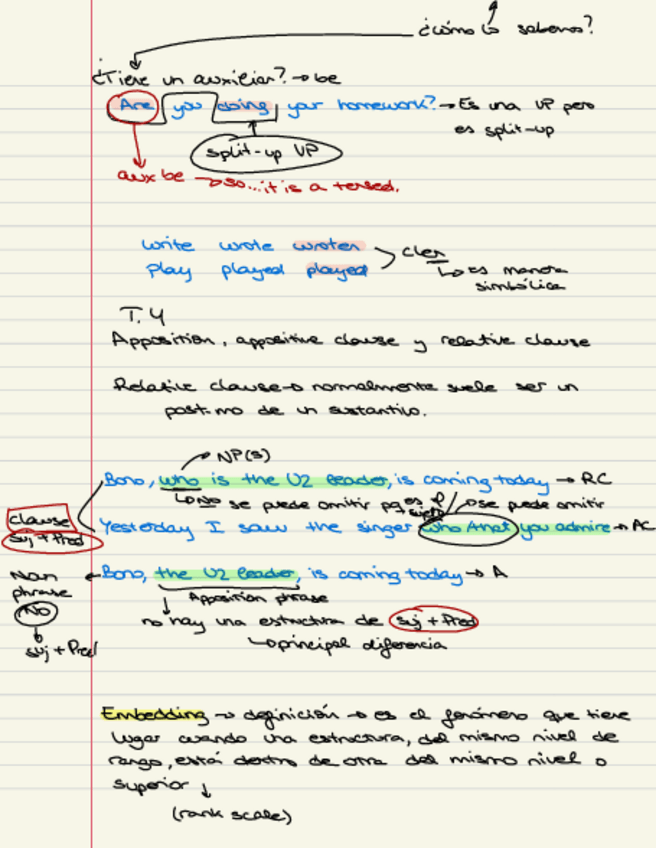 ¿cómo lo sabemos?
¿Tiene un auxiliar? → be
Are you doing your homework? → Es una VP pero
es split-up
split-up VP
aux be → so... it is a tensed.
write wrote wroten
play played played
→ es manera
simbólica
T.4
Apposition, appositive clause y relative clause
Relative clause → normalmente suele ser un
post-mo de un sustantivo.
NP(S)
Bono, who is the U2 leader, is coming today → RC
no se puede omitir pq es el sujeto
se puede omitir
clause
suj + Pred
Yesterday I saw the singer who/that you admire → AC
Bono, the U2 leader, is coming today → A
Noun
phrase
NO
suj + Pred
Apposition phrase
no hay una estructura de suj + Pred
principal diferencia
Embedding → definición → es el fenómeno que tiene
lugar cuando una estructura, del mismo nivel de
rango, está dentro de otra del mismo nivel o
superior ↓
(rank scale)